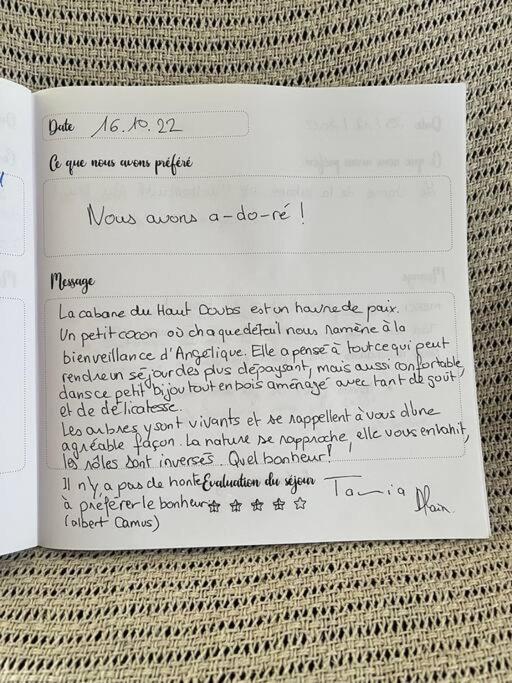 Date 16.10.22
Ce que nous avons préféré
Nous avons a-do-ré !
Message
La cabane du Haut Doubs est un havre de paix.
Un petit cocon où chaque détail nous ramène à la
bienveillance d'Angélique. Elle a pensé à tout ce qui peut
rendre un séjour des plus dépaysant, mais aussi confortable,
dans ce petit bijou tout en bois aménagé avec tant de goût,
et de délicatesse.
Les arbres y sont vivants et se rappellent à vous d'une
agréable façon. La nature se rapproche, elle vous envahit,
les rôles sont inversés. Quel bonheur !
Il n'y a pas de honte Evaluation du séjour Tania
à préférer le bonheur Alain
(albert Camus)